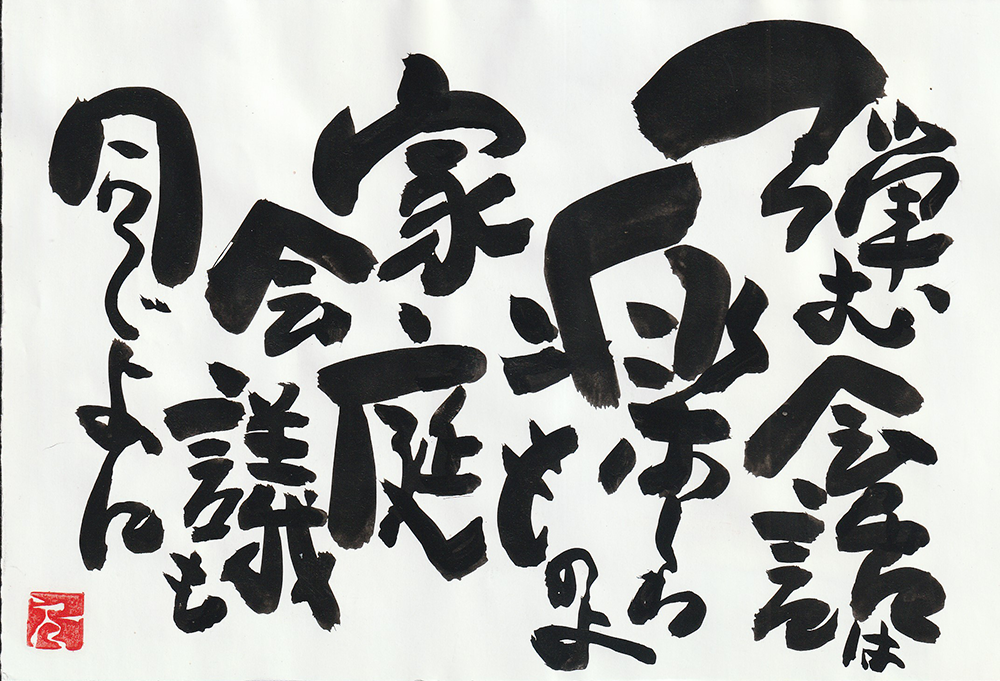 弾む会話は
楽しい
ものよ
家庭
会議も
同じよに